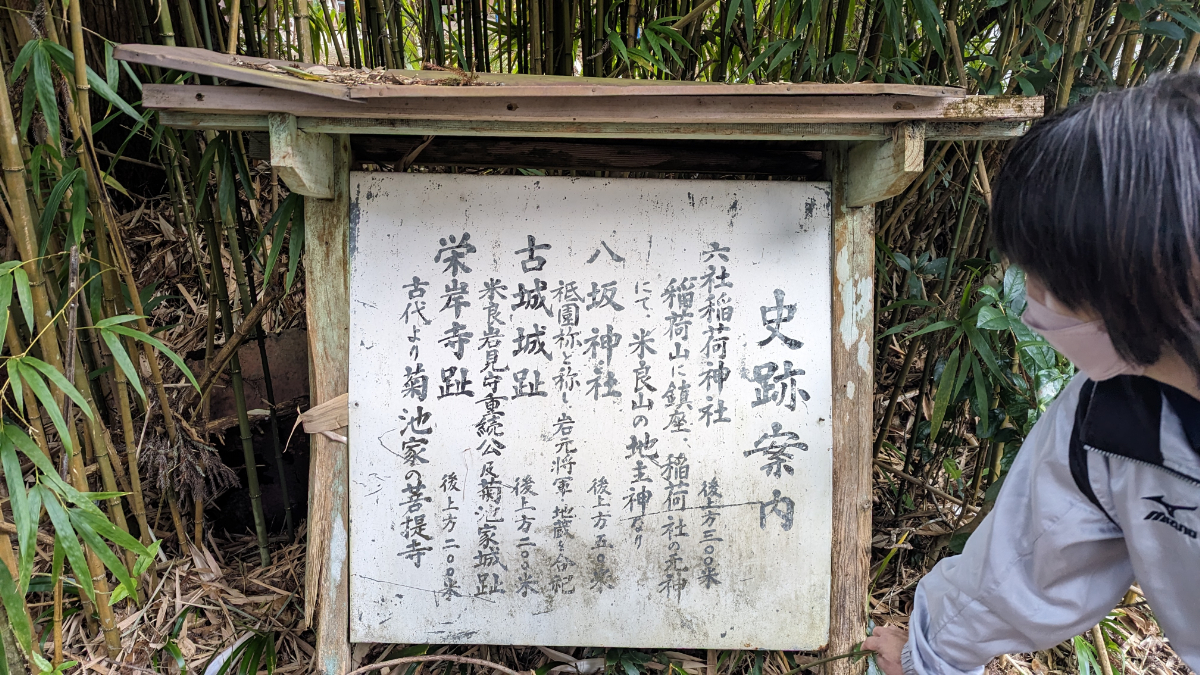 史跡案内
六社稲荷神社 後上方三〇〇米
稲荷山に鎮座、稲荷社の元神
にて米良山の地主神なり
八坂神社 後上方五〇米
祗園称と称し岩元将軍地蔵を合祀
古城城趾 後上方二〇〇米
米良岩見守重続公及菊池家城趾
栄岸寺趾 後上方二〇〇米
古代より菊池家の菩提寺
MIZUNO